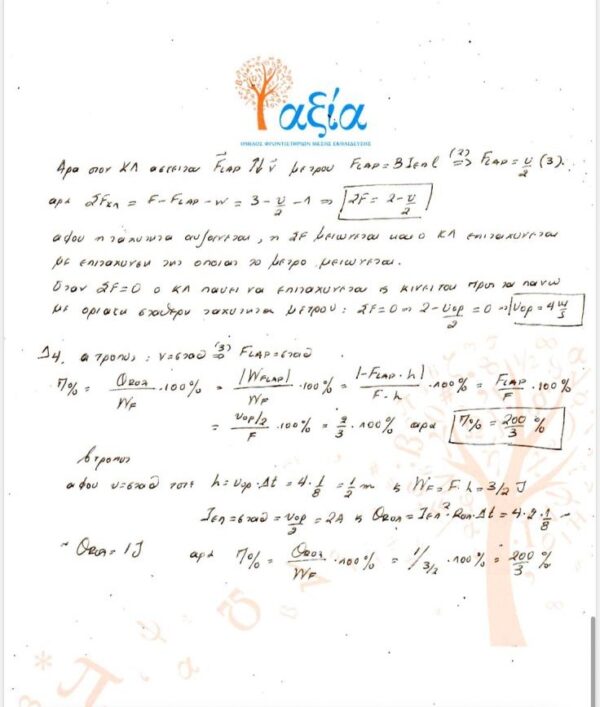 αξία
ΟΜΙΛΟΣ ΦΡΟΝΤΙΣΤΗΡΙΩΝ ΜΕΣΗΣ ΕΚΠΑΙΔΕΥΣΗΣ
Άρα στον ΚΛ ασκείται F⃗LAP ↑↓ v⃗ μέτρου FLAP = B Iεπ l (2)⇒ FLAP = υ/2 (3).
αρα ΣFκλ = F - FLAP - w = 3 - υ/2 - 1 ⇒ ΣF = 2 - υ/2
αφου η ταχυτητα αυξανεται, η ΣF μειωνεται και ο ΚΛ επιταχυνεται
με επιταχυνση της οποιας το μετρο μειωνεται.
Οταν ΣF=0 ο ΚΛ παυει να επιταχυνεται κ κινειται προς τα πανω
με οριακη σταθερη ταχυτητα μετρου: ΣF=0 ⇒ 2 - υορ/2 = 0 ⇒ υορ = 4 m/s
Δ4. α τροπος: υ=σταθ (3)⇒ FLAP=σταθ.
Π% = QRολ/WF · 100% = |WFLAP|/WF · 100% = |-FLAP · h|/F·h · 100% = FLAP/F · 100%
= υορ/2/F · 100% = 2/3 · 100% αρα Π% = 200/3 %
β τροπος
αφου υ=σταθ τοτε h = υορ · Δt = 4 · 1/8 = 1/2 m κ WF = F · h = 3/2 J
Iεπ=σταθ = υορ/2 = 2A κ QRολ = Iεπ² · Rολ · Δt = 4 · 2 · 1/8 ~
~ QRολ = 1J αρα Π% = QRολ/WF · 100% = 1/3/2 · 100% = 200/3 %